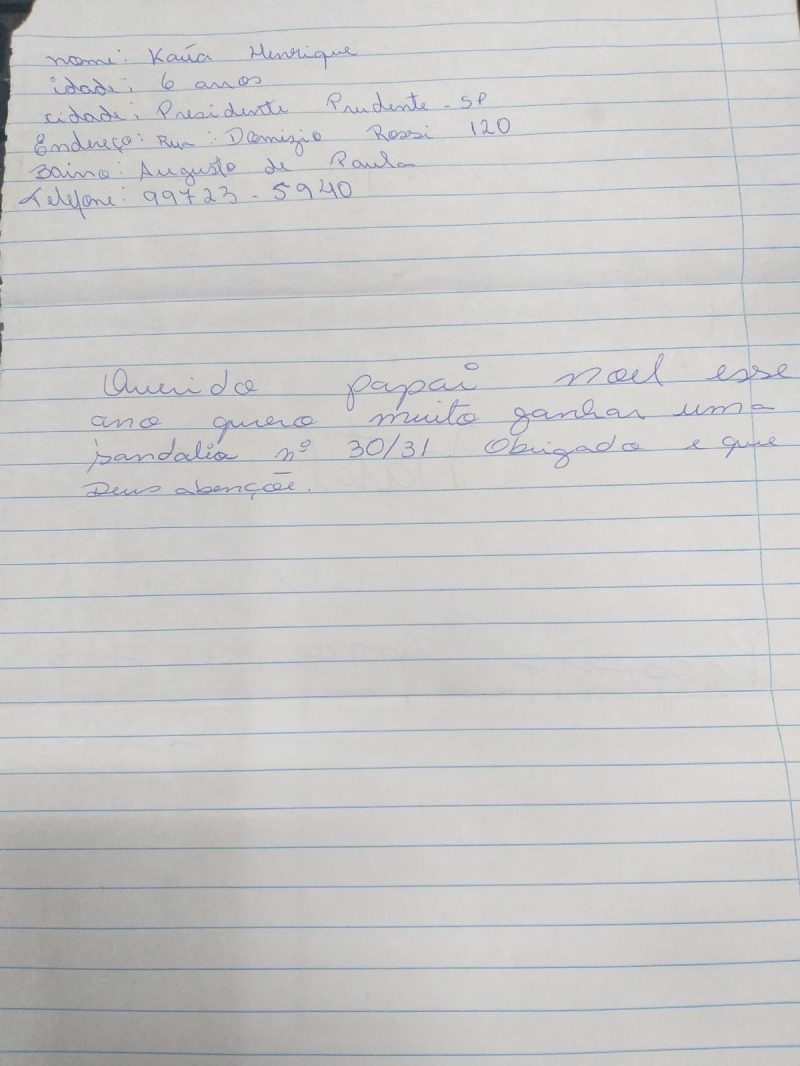 nome: Kaúa Henrique
idade: 6 anos
cidade: Presidente Prudente - SP
Endereço: Rua: Domizio Rossi 120
Bairro: Augusto de Paula
Telefone: 99723-5940
Querido papai noel esse
ano quero muito ganhar uma
sandalia nº 30/31. Obrigado e que
Deus abençõe.